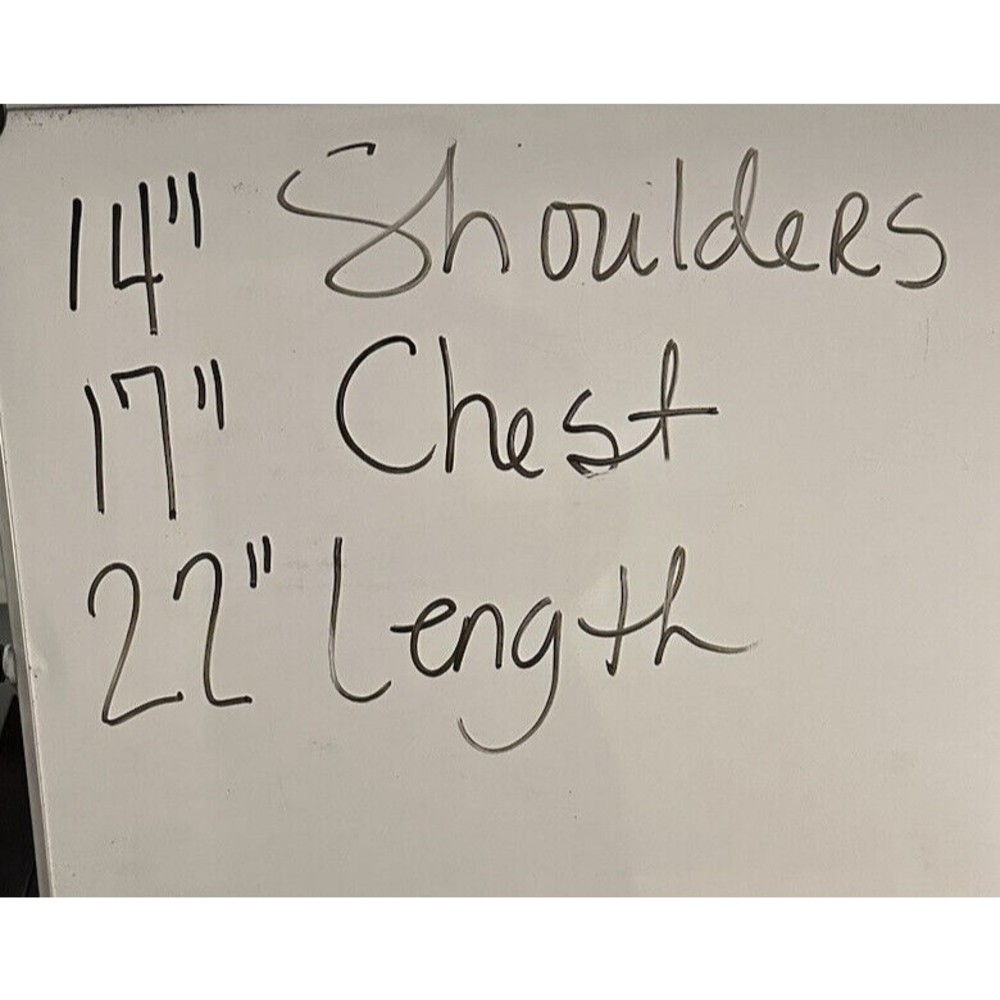 14" Shoulders
17" Chest
22" Length